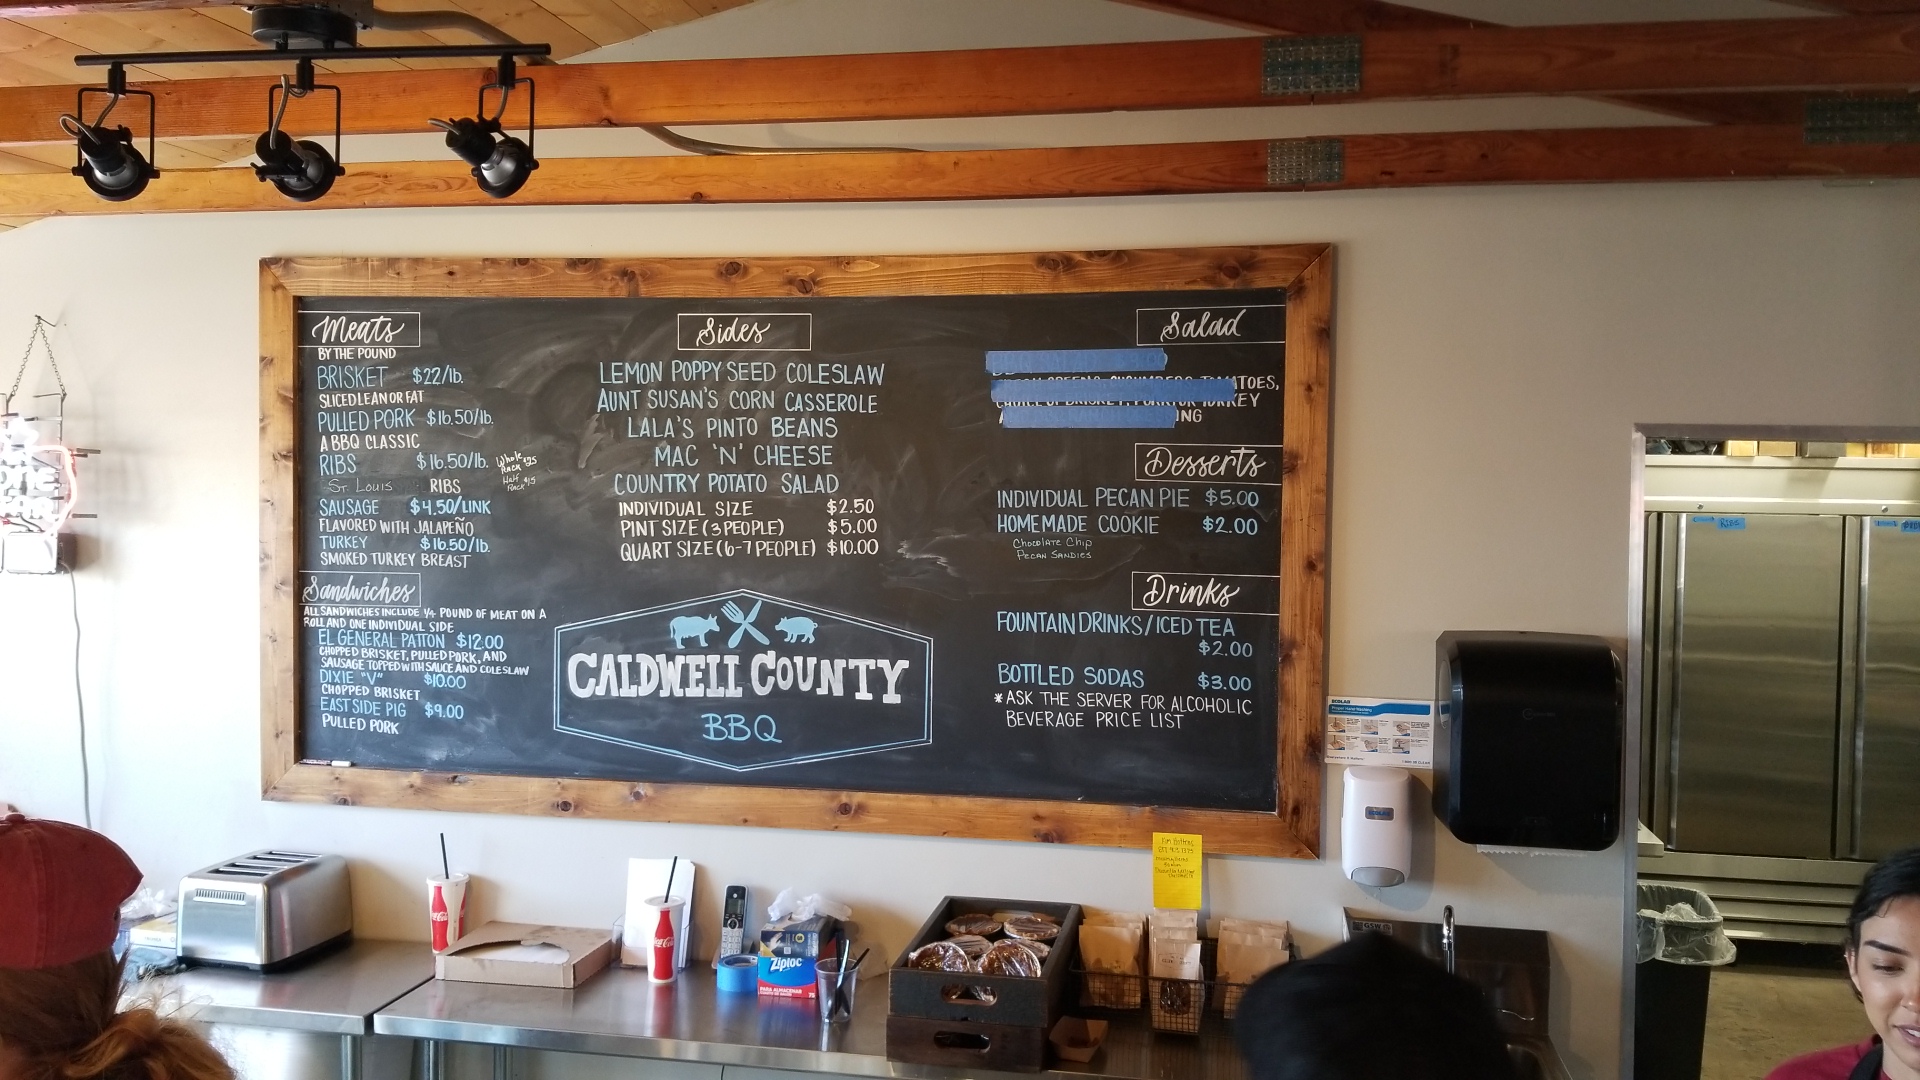 Meats
BY THE POUND
BRISKET $22/lb.
SLICED LEAN OR FAT
PULLED PORK $16.50/lb.
A BBQ CLASSIC
RIBS $16.50/lb.
Whole Rack $25
Half Rack $15
"St. Louis RIBS
SAUSAGE $4.50/LINK
FLAVORED WITH JALAPEÑO
TURKEY $16.50/lb.
SMOKED TURKEY BREAST
Sandwiches
ALL SANDWICHES INCLUDE 1/4 POUND OF MEAT ON A
ROLL AND ONE INDIVIDUAL SIDE
EL GENERAL PATTON $12.00
CHOPPED BRISKET, PULLED PORK, AND
SAUSAGE TOPPED WITH SAUCE AND COLESLAW
DIXIE "V" $10.00
CHOPPED BRISKET
EAST SIDE PIG $9.00
PULLED PORK
Sides
LEMON POPPY SEED COLESLAW
AUNT SUSAN'S CORN CASSEROLE
LALA'S PINTO BEANS
MAC 'N' CHEESE
COUNTRY POTATO SALAD
INDIVIDUAL SIZE $2.50
PINT SIZE (3 PEOPLE) $5.00
QUART SIZE (6-7 PEOPLE) $10.00
CALDWELL COUNTY
BBQ
Salad
Desserts
INDIVIDUAL PECAN PIE $5.00
HOMEMADE COOKIE $2.00
Chocolate Chip
Pecan Sandies
Drinks
FOUNTAIN DRINKS/ICED TEA
$2.00
BOTTLED SODAS $3.00
*ASK THE SERVER FOR ALCOHOLIC
BEVERAGE PRICE LIST
ECOLAB
ECOLAB
RIBS
Coca-Cola
Coca-Cola
Ziploc
PARA ALMACENAR